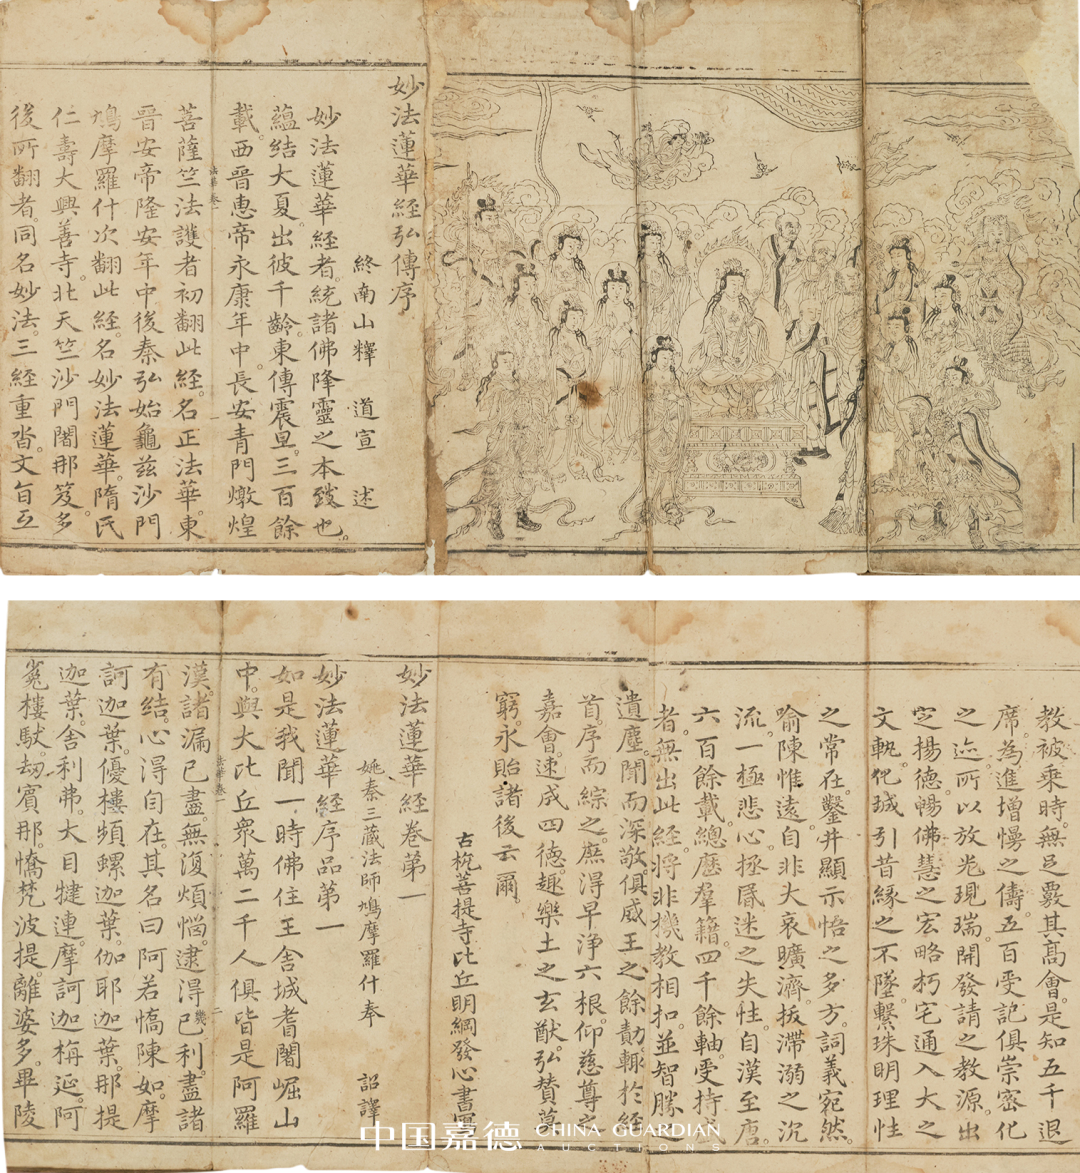 妙法蓮華經弘傳序
終南山釋 道宣 述
妙法蓮華經者。統諸佛降靈之本致也。
蘊結大夏。出彼千齡。東傳震旦。三百餘
載。西晉惠帝永康年中。長安青門燉煌
法華卷一 一
菩薩竺法護者初翻此經。名正法華。東
晉安帝隆安年中後秦弘始龜茲沙門
鳩摩羅什次翻此經。名妙法蓮華。隋氏
仁壽大興善寺。北天竺沙門闍那笈多
後所翻者。同名妙法。三經重沓。文旨互
教被乘時。無足覈其高會。是知五千退
席。為進增慢之儔。五百受記俱崇密化
之迹。所以放光現瑞。開發請之教源。出
定揚德。暢佛慧之宏略。朽宅通入大之
文軌。化城引昔緣之不墜。繫珠明理性
之常在。鑿井顯示悟之多方。詞義宛然。
喻陳惟遠。自非大哀曠濟。拔滯溺之沉
流。一極悲心。拯昏迷之失性。自漢至唐。
六百餘載。總歷羣籍。四千餘軸。受持
者。無出此經。將非機教相扣。並智勝之
遺塵。聞而深敬。俱威王之餘勣。輒於經
首。序而綜之。庶得早淨六根。仰慈尊之
嘉會。速成四德。趣樂土之玄猷。弘贊莫
窮。永貽諸後云爾。
古杭菩提寺比丘明綱發心書寫
妙法蓮華經卷第一
姚秦三藏法師鳩摩羅什奉 詔譯
妙法蓮華經序品第一
如是我聞一時佛住王舍城耆闍崛山
中。與大比丘衆萬二千人俱皆是阿羅
法華卷一 二
漢。諸漏已盡。無復煩惱。逮得己利。盡諸
有結。心得自在。其名曰阿若憍陳如。摩
訶迦葉。優樓頻螺迦葉。伽耶迦葉。那提
迦葉。舍利弗。大目犍連。摩訶迦栴延。阿
㝹樓馱。劫賓那。憍梵波提。離婆多。畢陵
中国嘉德 CHINA GUARDIAN
AUCTIONS